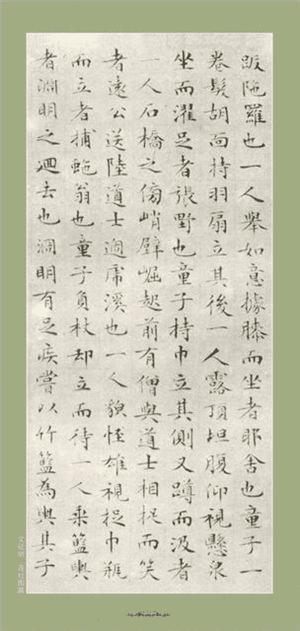 跋陁羅也一人舉如意據膝而坐者耶舍也童子一
卷髮胡面持羽扇立其後一人露頂坦腹仰視懸泉
坐而濯足者張野也童子持巾立其側又蹲而汲者
一人石橋之傍峭壁崛起前有僧與道士相捉而笑
者遠公送陸道士過虎溪也一人貌怪雄視捉巾瓶
而立者捕蛇翁也童子負杖却立而待一人乗籃輿
者淵明之迴去也淵明有足疾嘗以竹籃為輿其子
文徵明 蓮社圖記